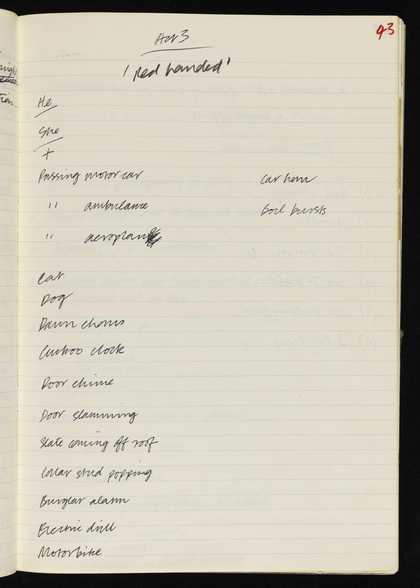 93
Act 3
'Red handed'
He
She
+
Passing motor car
Car horn
" ambulance
" aeroplane
Cat
Dog
Dawn chorus
Cuckoo clock
Door chime
Door slamming
Slate coming off roof
Collar stud popping
Burglar alarm
Electric drill
Motorbike